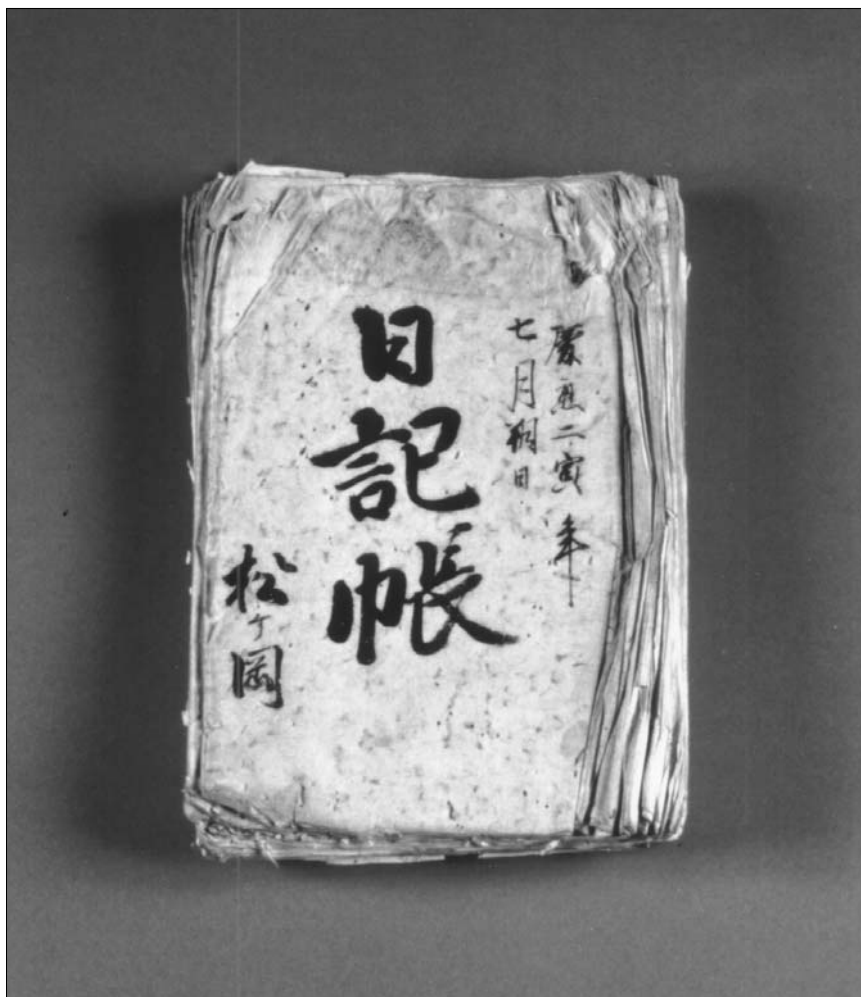 慶應二寅年
七月朔日
日記帳
松ケ岡